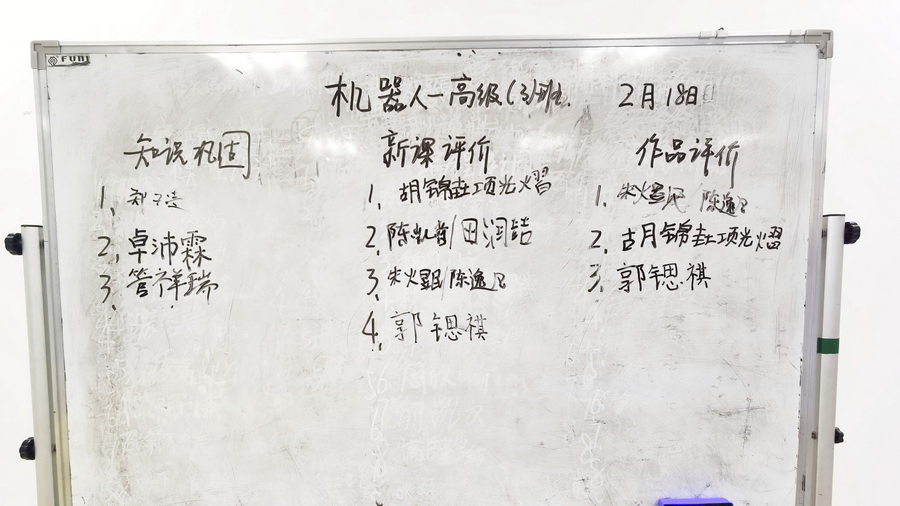 FUNI
机器人—高级(3)班. 2月18日
知识巩固
1.
2. 卓沛霖
3. 管祥瑞
新课评价
1. 胡锦垚 项光熠
2. 陈 / 田润喆
3. 朱火昆 / 陈逸
4. 郭锶祺
作品评价
1. 陈逸
2. 胡锦垚 项光熠
3. 郭锶祺